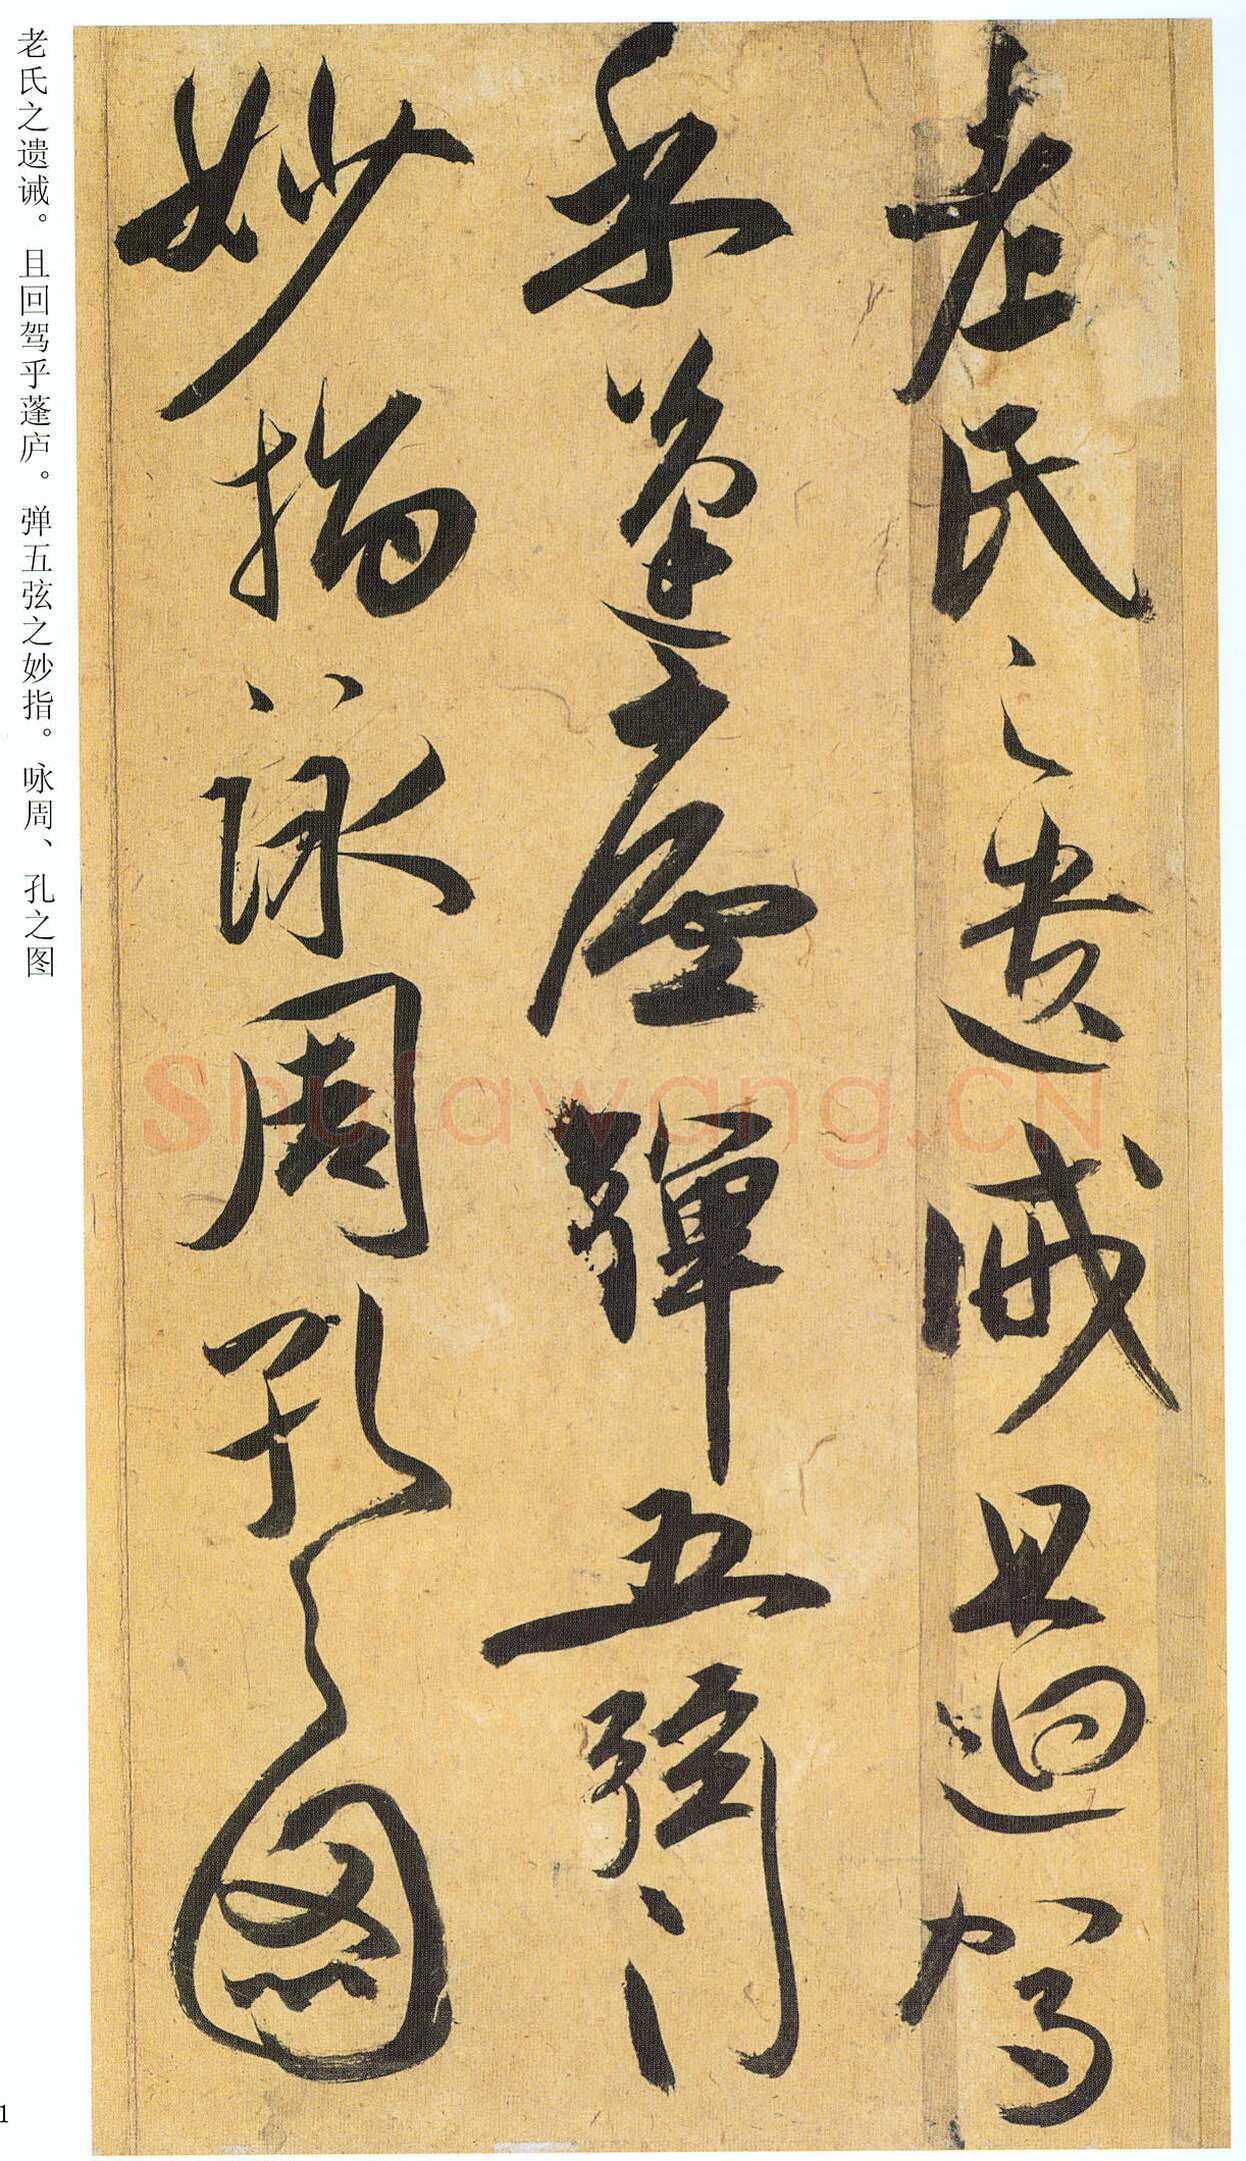 老氏之遺誡且迴駕
乎蓬廬彈五弦之
妙指詠周孔之圖
老氏之遗诫。且回驾乎蓬庐。弹五弦之妙指。咏周、孔之图
Shufawang.CN
1